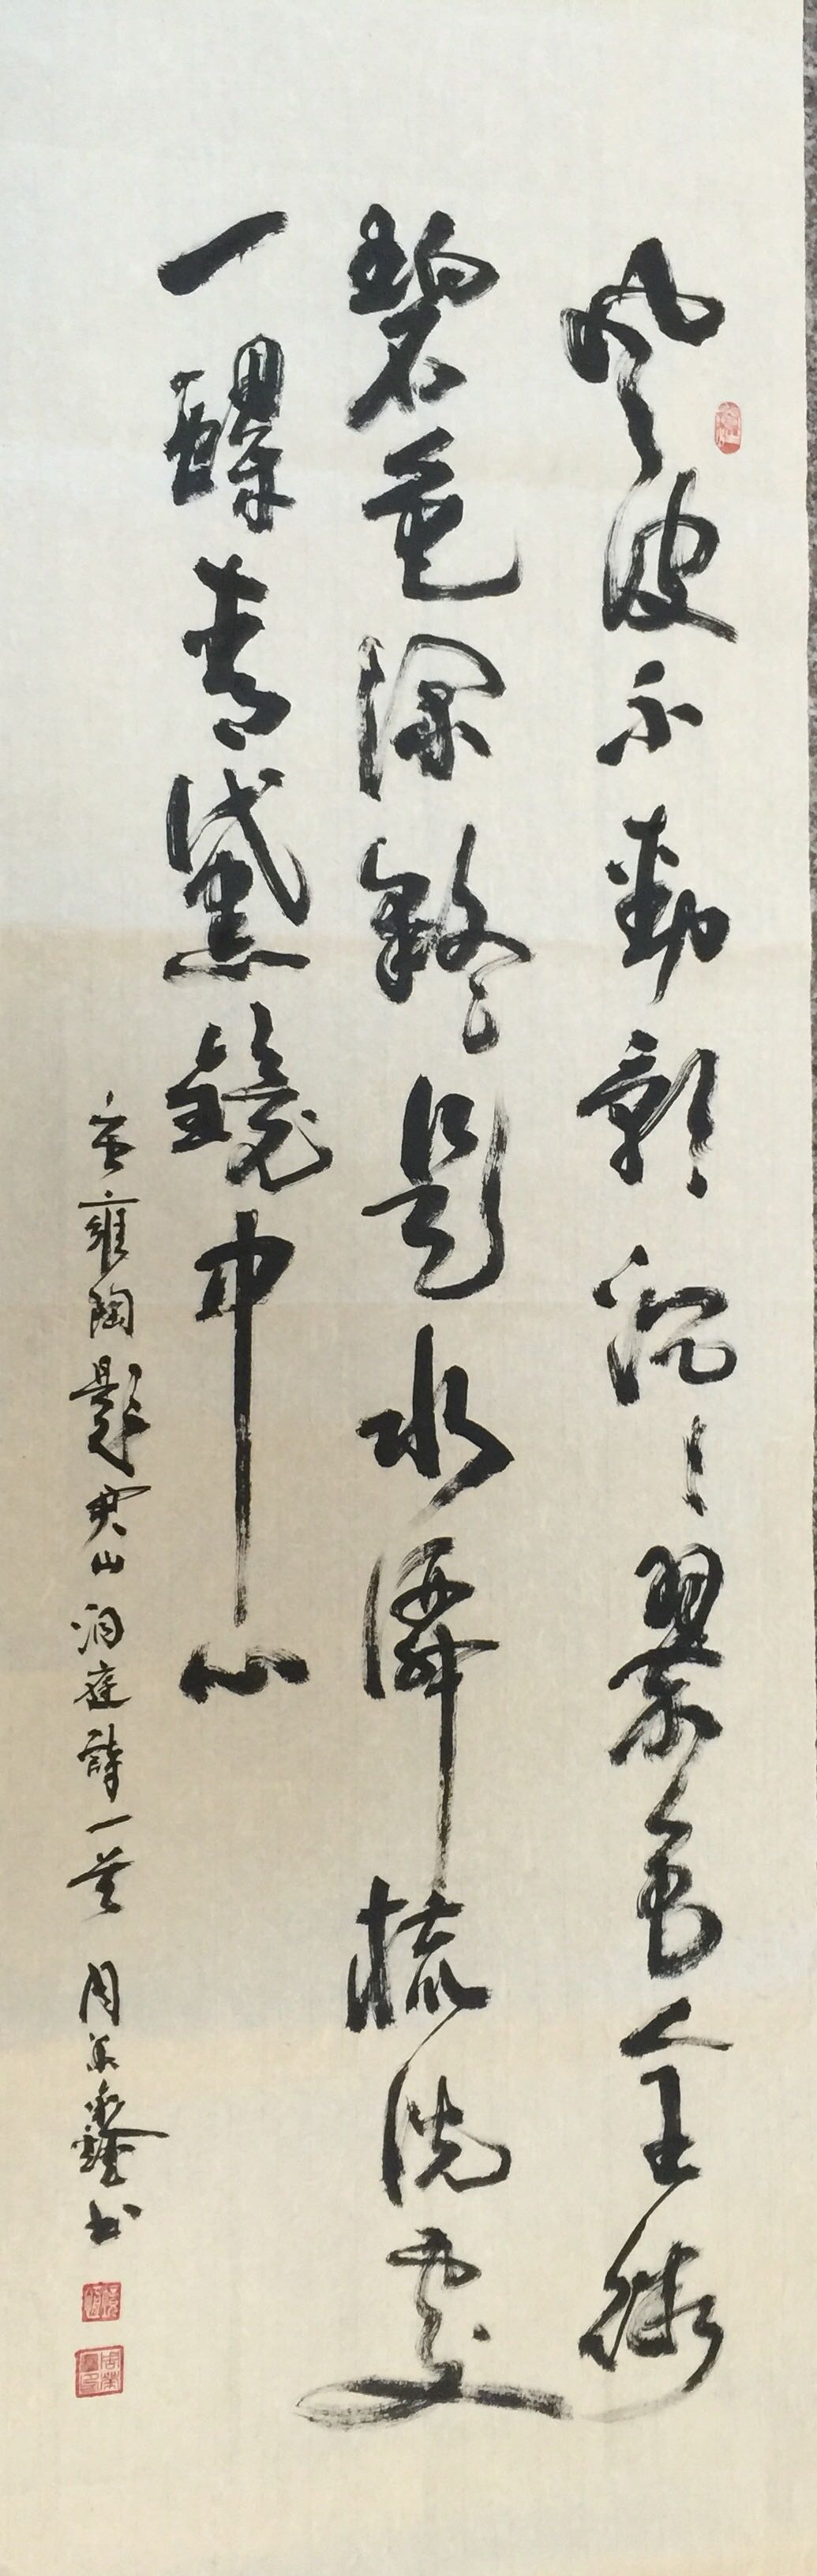 風波不動影沉沉翠色全微
碧色深疑是水僊梳洗處
一螺青黛鏡中心
雍陶題君山洞庭詩一首 周荣鑫书